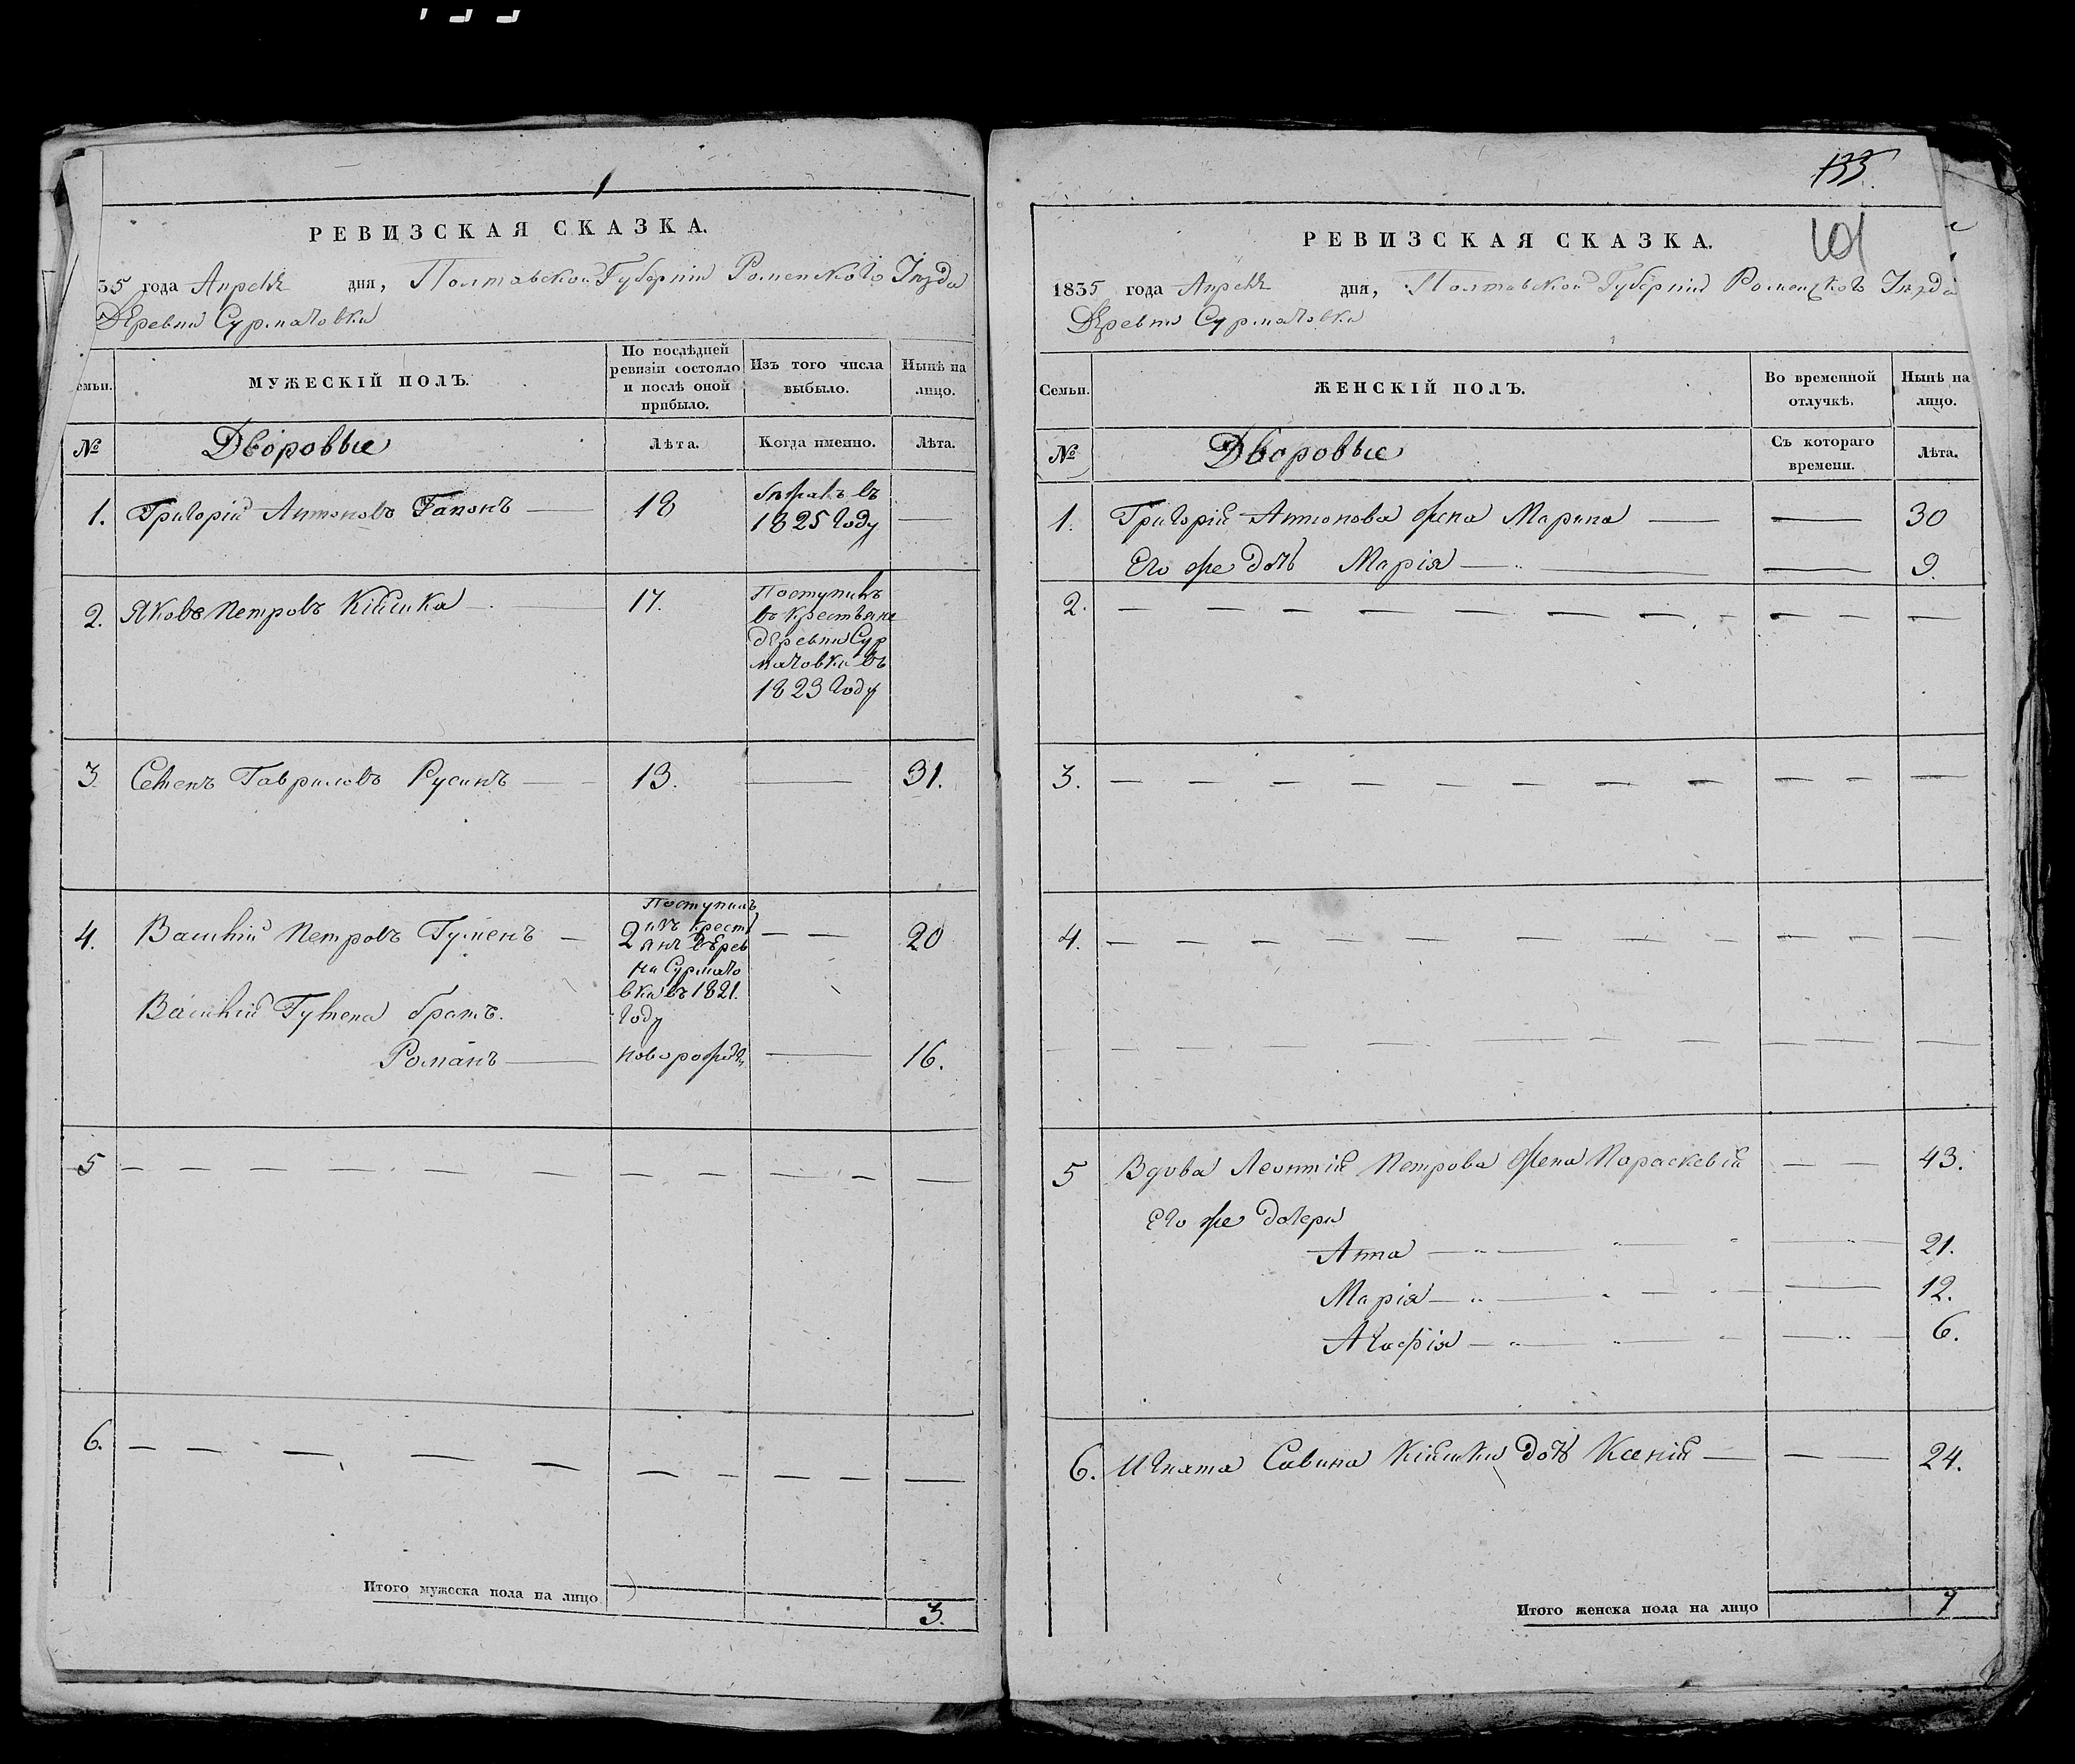 РЕВИЗСКАЯ СКАЗКА.
35 года Апреля дня, Полтавской Губерніи Роменскаго Уѣзда
Деревни Сурмачовки
семьи.
МУЖЕСКІЙ ПОЛЪ.
По послѣдней ревизіи состояло и послѣ оной прибыло.
Изъ того числа выбыло.
Нынѣ на лицо.
№
Дворовые
Лѣта.
Когда именно.
Лѣта.
1. Григорій Антоновъ Гапонъ 18
бѣжалъ въ
1825 году
2. Яковъ Петровъ Кішка 17.
Поступилъ
въ крестьяне
деревни Сур
мачовки въ
1823 году
3 Семенъ Гавриловъ Русинъ 13. 31.
4. Василій Петровъ Гуменъ 2 20
Поступилъ
изъ крест
янъ дерев
ни Сурмачо
вки въ 1821.
году
Василій Гумена братъ.
Романъ новорожд. 16.
5
6.
Итого мужеска пола на лицо 3.
133.
101
РЕВИЗСКАЯ СКАЗКА.
1835 года Апреля дня, Полтавской Губерніи Роменскаго Уѣзда
Деревни Сурмачовки
Семьи.
ЖЕНСКІЙ ПОЛЪ.
Во временной отлучкѣ.
Нынѣ на лицо.
№
Дворовые
Съ котораго времени.
Лѣта.
1. Григорій Антонова жена Марина 30
Его же дочь Марія 9.
2.
3.
4.
5 Вдова Леонтій Петрова жена Параскевія 43.
Его же дочери
Анна 21.
Марія 12.
Агафія 6.
6. Игната Савина Кішки дочь Ксенія 24.
Итого женска пола на лицо 7